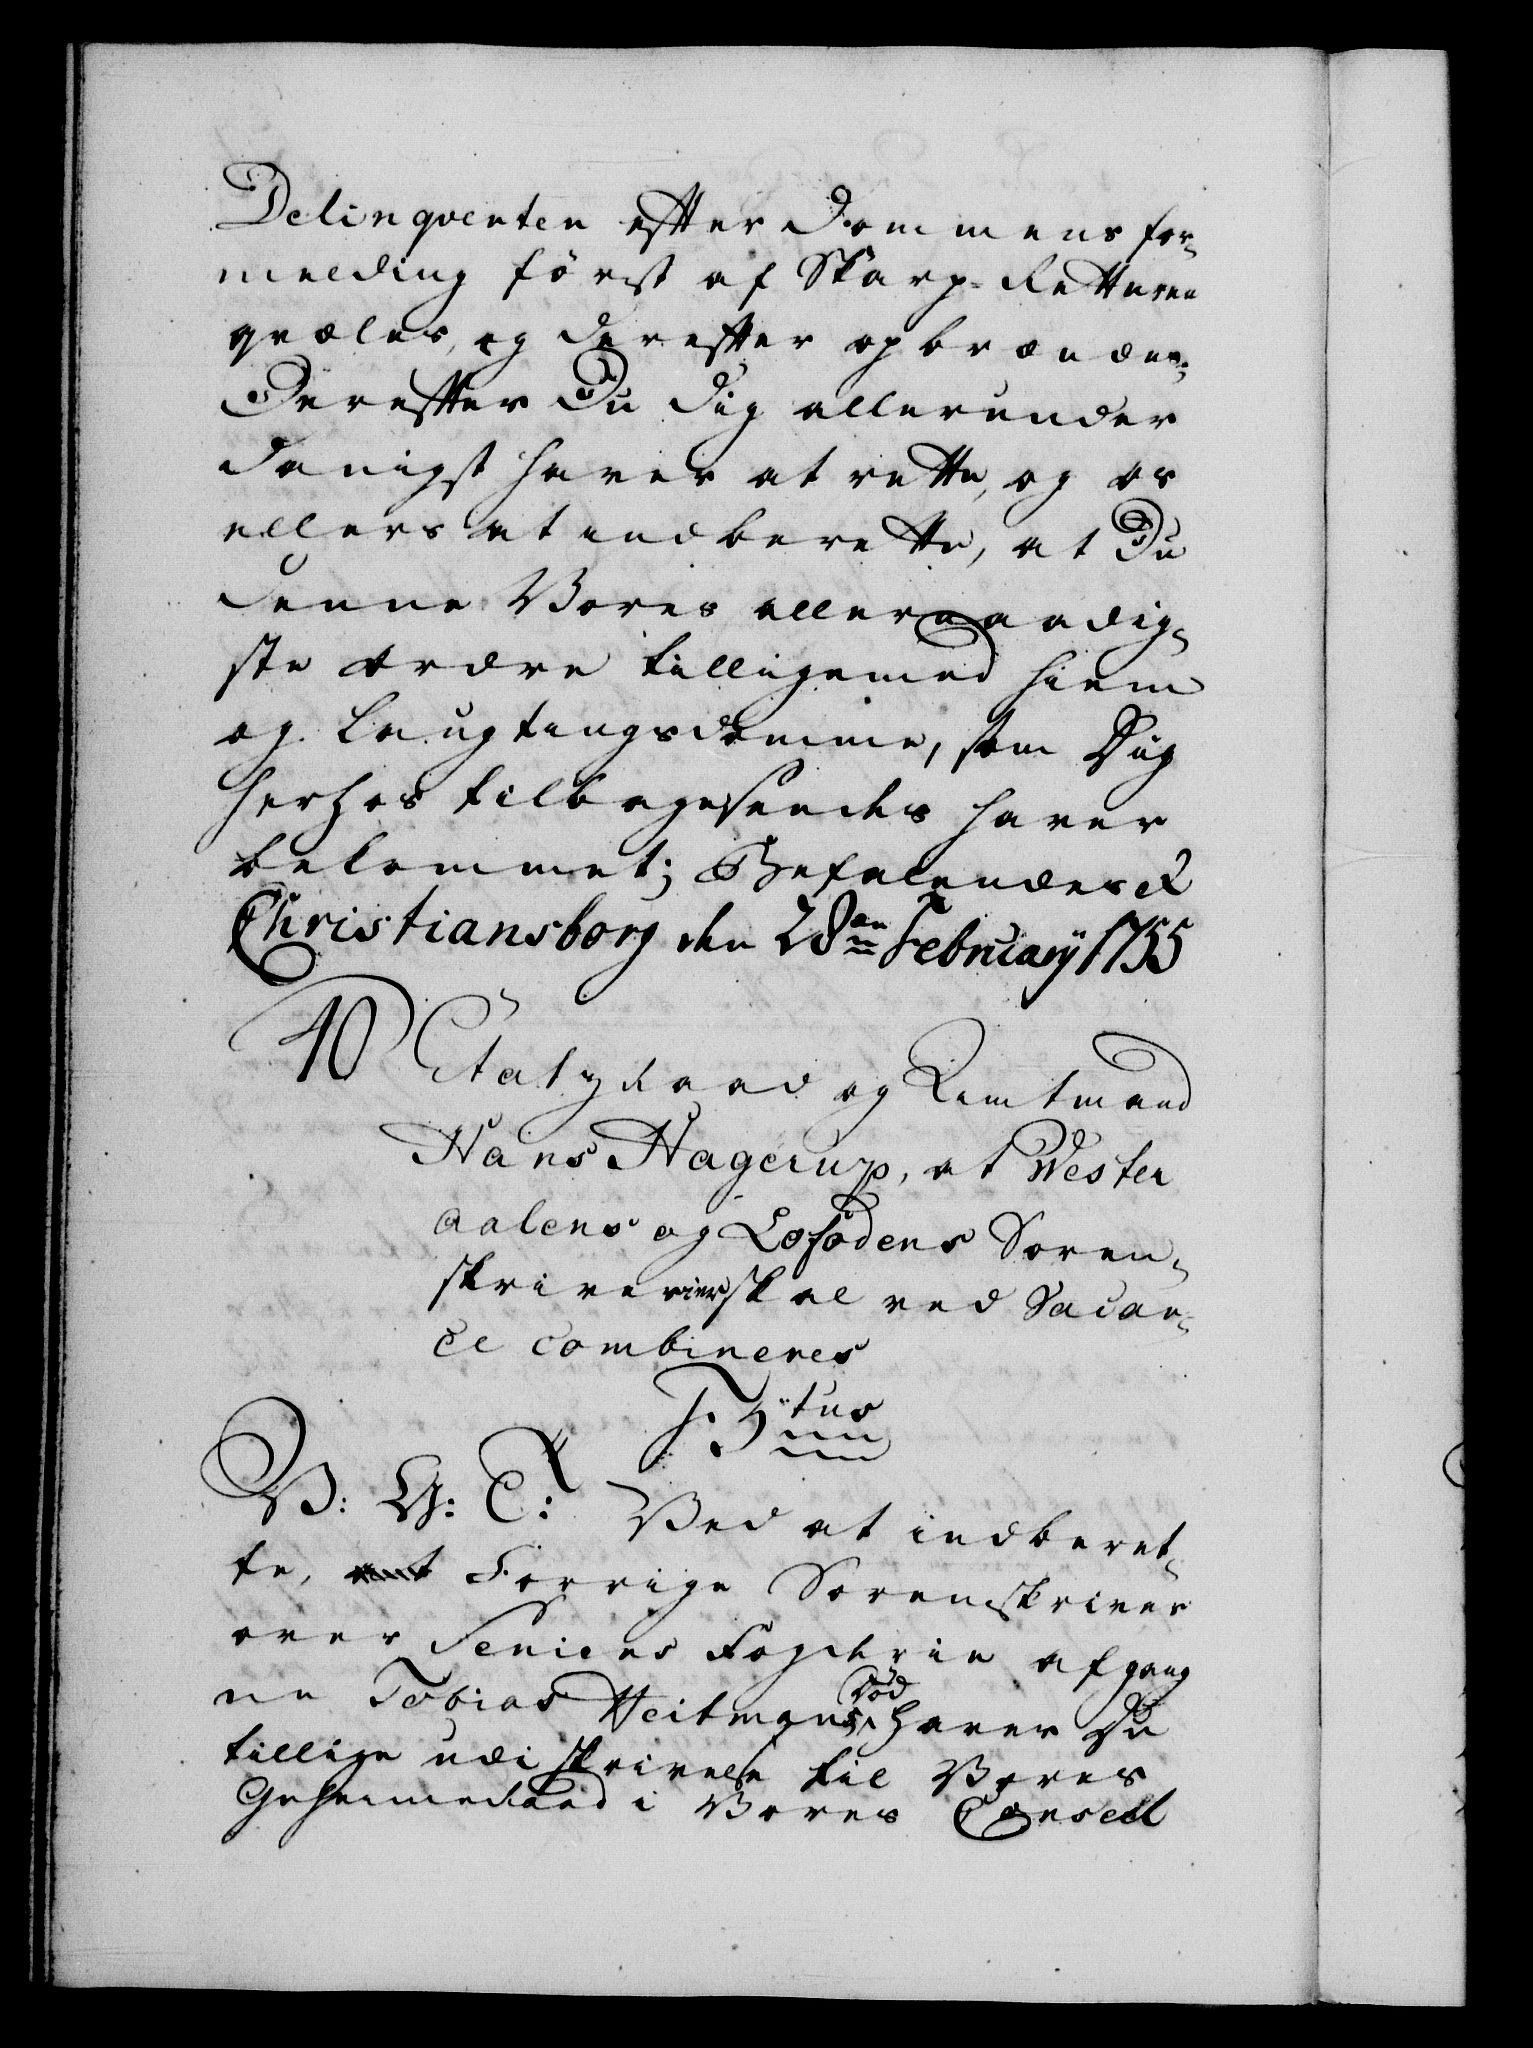 Delinqventen efter Dommens for¬
melding först af Skarp-Retteren
qvæles, og derefter opbrændes.
Derefter Du dig allerunder
danigst haver at rette, og os
ellers at indberette, at Du
denne Vores allernaadig¬
ste Ordre tilligemed Hiem
og Laugtingsdomme, som Dig
herhos tilbagesendes haver
bekommet; Befalendes &
Christiansborg den 28de February 1755
40 Etatzraad og Amtmand
Hans Hagerup, at Wester
aalens og Lofodens Soren¬
skriverier skal ved Vacan¬
ce combineres
F: 5tus
V: G: T: Ved at indberet¬
te, Forrige Sorenskriver
over Seniens Fogderie afgang
ne Tobias Heitmans Död haver Du
tillige udi skrivelse til Vores
Geheimeraad i Vores Conseil